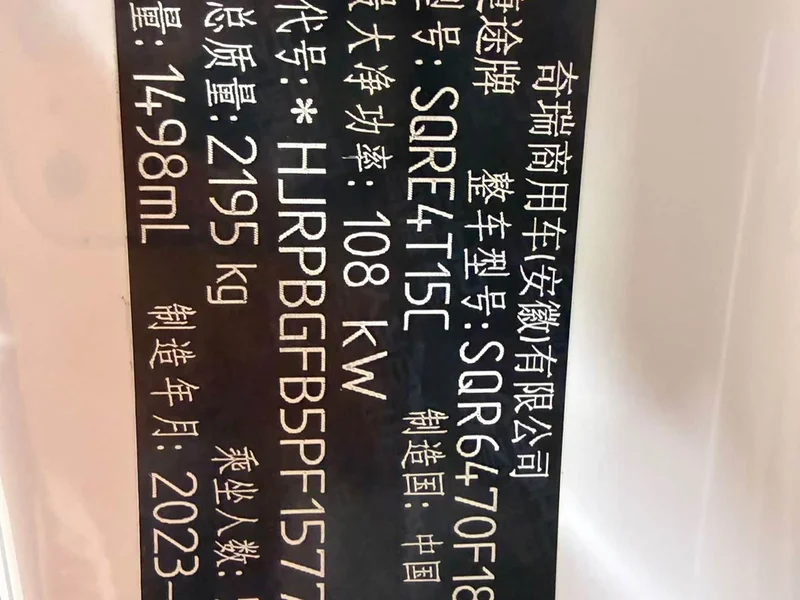 奇瑞商用车(安徽)有限公司
途牌 整车型号:SQR6470F18
型号:SQRE4T15C 制造国:中国
最大净功率:108 kW
代号:*HJRPBGFB5PF1577
总质量:2195 kg 乘坐人数:
量:1498mL 制造年月:2023-